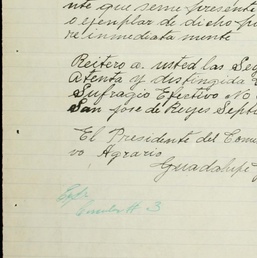 nte que seme presente
o ejemplar de dicho
inmediata mente
Reitero a usted las
Atenta y distinguida
Sufragio Efectivo No
San jose de Reyes Septi
El Presidente del Comi
vo Agrario
Guadalupe